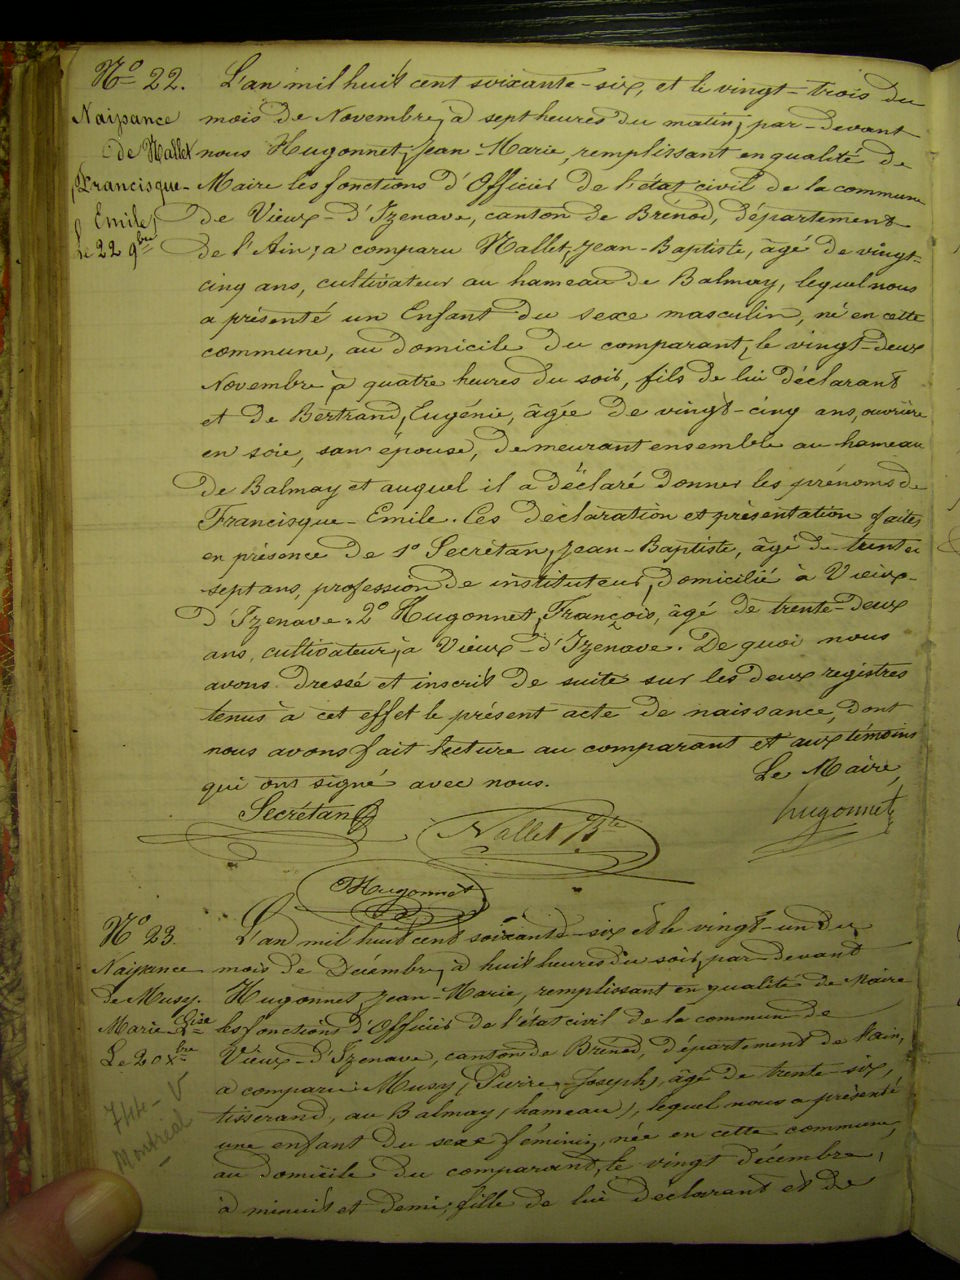 N° 22.
Naissance
de Nallet
Francisque-
Emile
Le 22 9bre
L'an mil huit cent soixante-six, et le vingt-trois du
mois de Novembre, à sept heures du matin; par-devant
nous Hugonnet, Jean-Marie, remplissant en qualité de
Maire les fonctions d'Officier de l'état civil de la commune
de Vieux-d'Izenave, canton de Brénod, département
de l'Ain; a comparu Nallet, Jean-Baptiste, âgé de vingt-
cinq ans, cultivateur au hameau de Balmay, lequel nous
a présenté un Enfant du sexe masculin, né en cette
commune, au domicile du comparant, le vingt-deux
Novembre, à quatre heures du soir, fils de lui déclarant
et de Bertrand, Eugénie, âgée de vingt-cinq ans, ouvrière
en soie, son épouse, demeurant ensemble au hameau
de Balmay et auquel il a déclaré donner les prénoms de
Francisque-Emile. Ces déclaration et présentation faites
en présence de 1° Secrétan, Jean-Baptiste, âgé de trente
sept ans, profession de instituteur, domicilié à Vieux-
d'Izenave. 2° Hugonnet, François, âgé de trente-deux
ans, cultivateur, à Vieux-d'Izenave. De quoi nous
avons dressé et inscrit de suite sur les deux registres
tenus à cet effet le présent acte de naissance, dont
nous avons fait lecture au comparant et aux témoins
qui ont signé avec nous.
Le Maire,
Secrétan
Nallet Bte
hugonnet
Hugonnet
N° 23
Naissance
de Musy.
Marie-Elise
Le 20 Xbre
744-V
Montreal
L'an mil huit cent soixante-six et le vingt-un du
mois de Décembre, à huit heures du soir, par-devant
Hugonnet, Jean-Marie, remplissant en qualité de Maire
les fonctions d'Officier de l'état civil de la commune de
Vieux-d'Izenave, canton de Brénod, département de l'ain,
a comparu Musy, Pierre-Joseph, âgé de trente-six,
tisserand, au Balmay, hameau, lequel nous a présenté
une enfant du sexe féminin, née en cette commune,
au domicile du comparant, le vingt décembre,
à minuit et demi, fille de lui déclarant et de